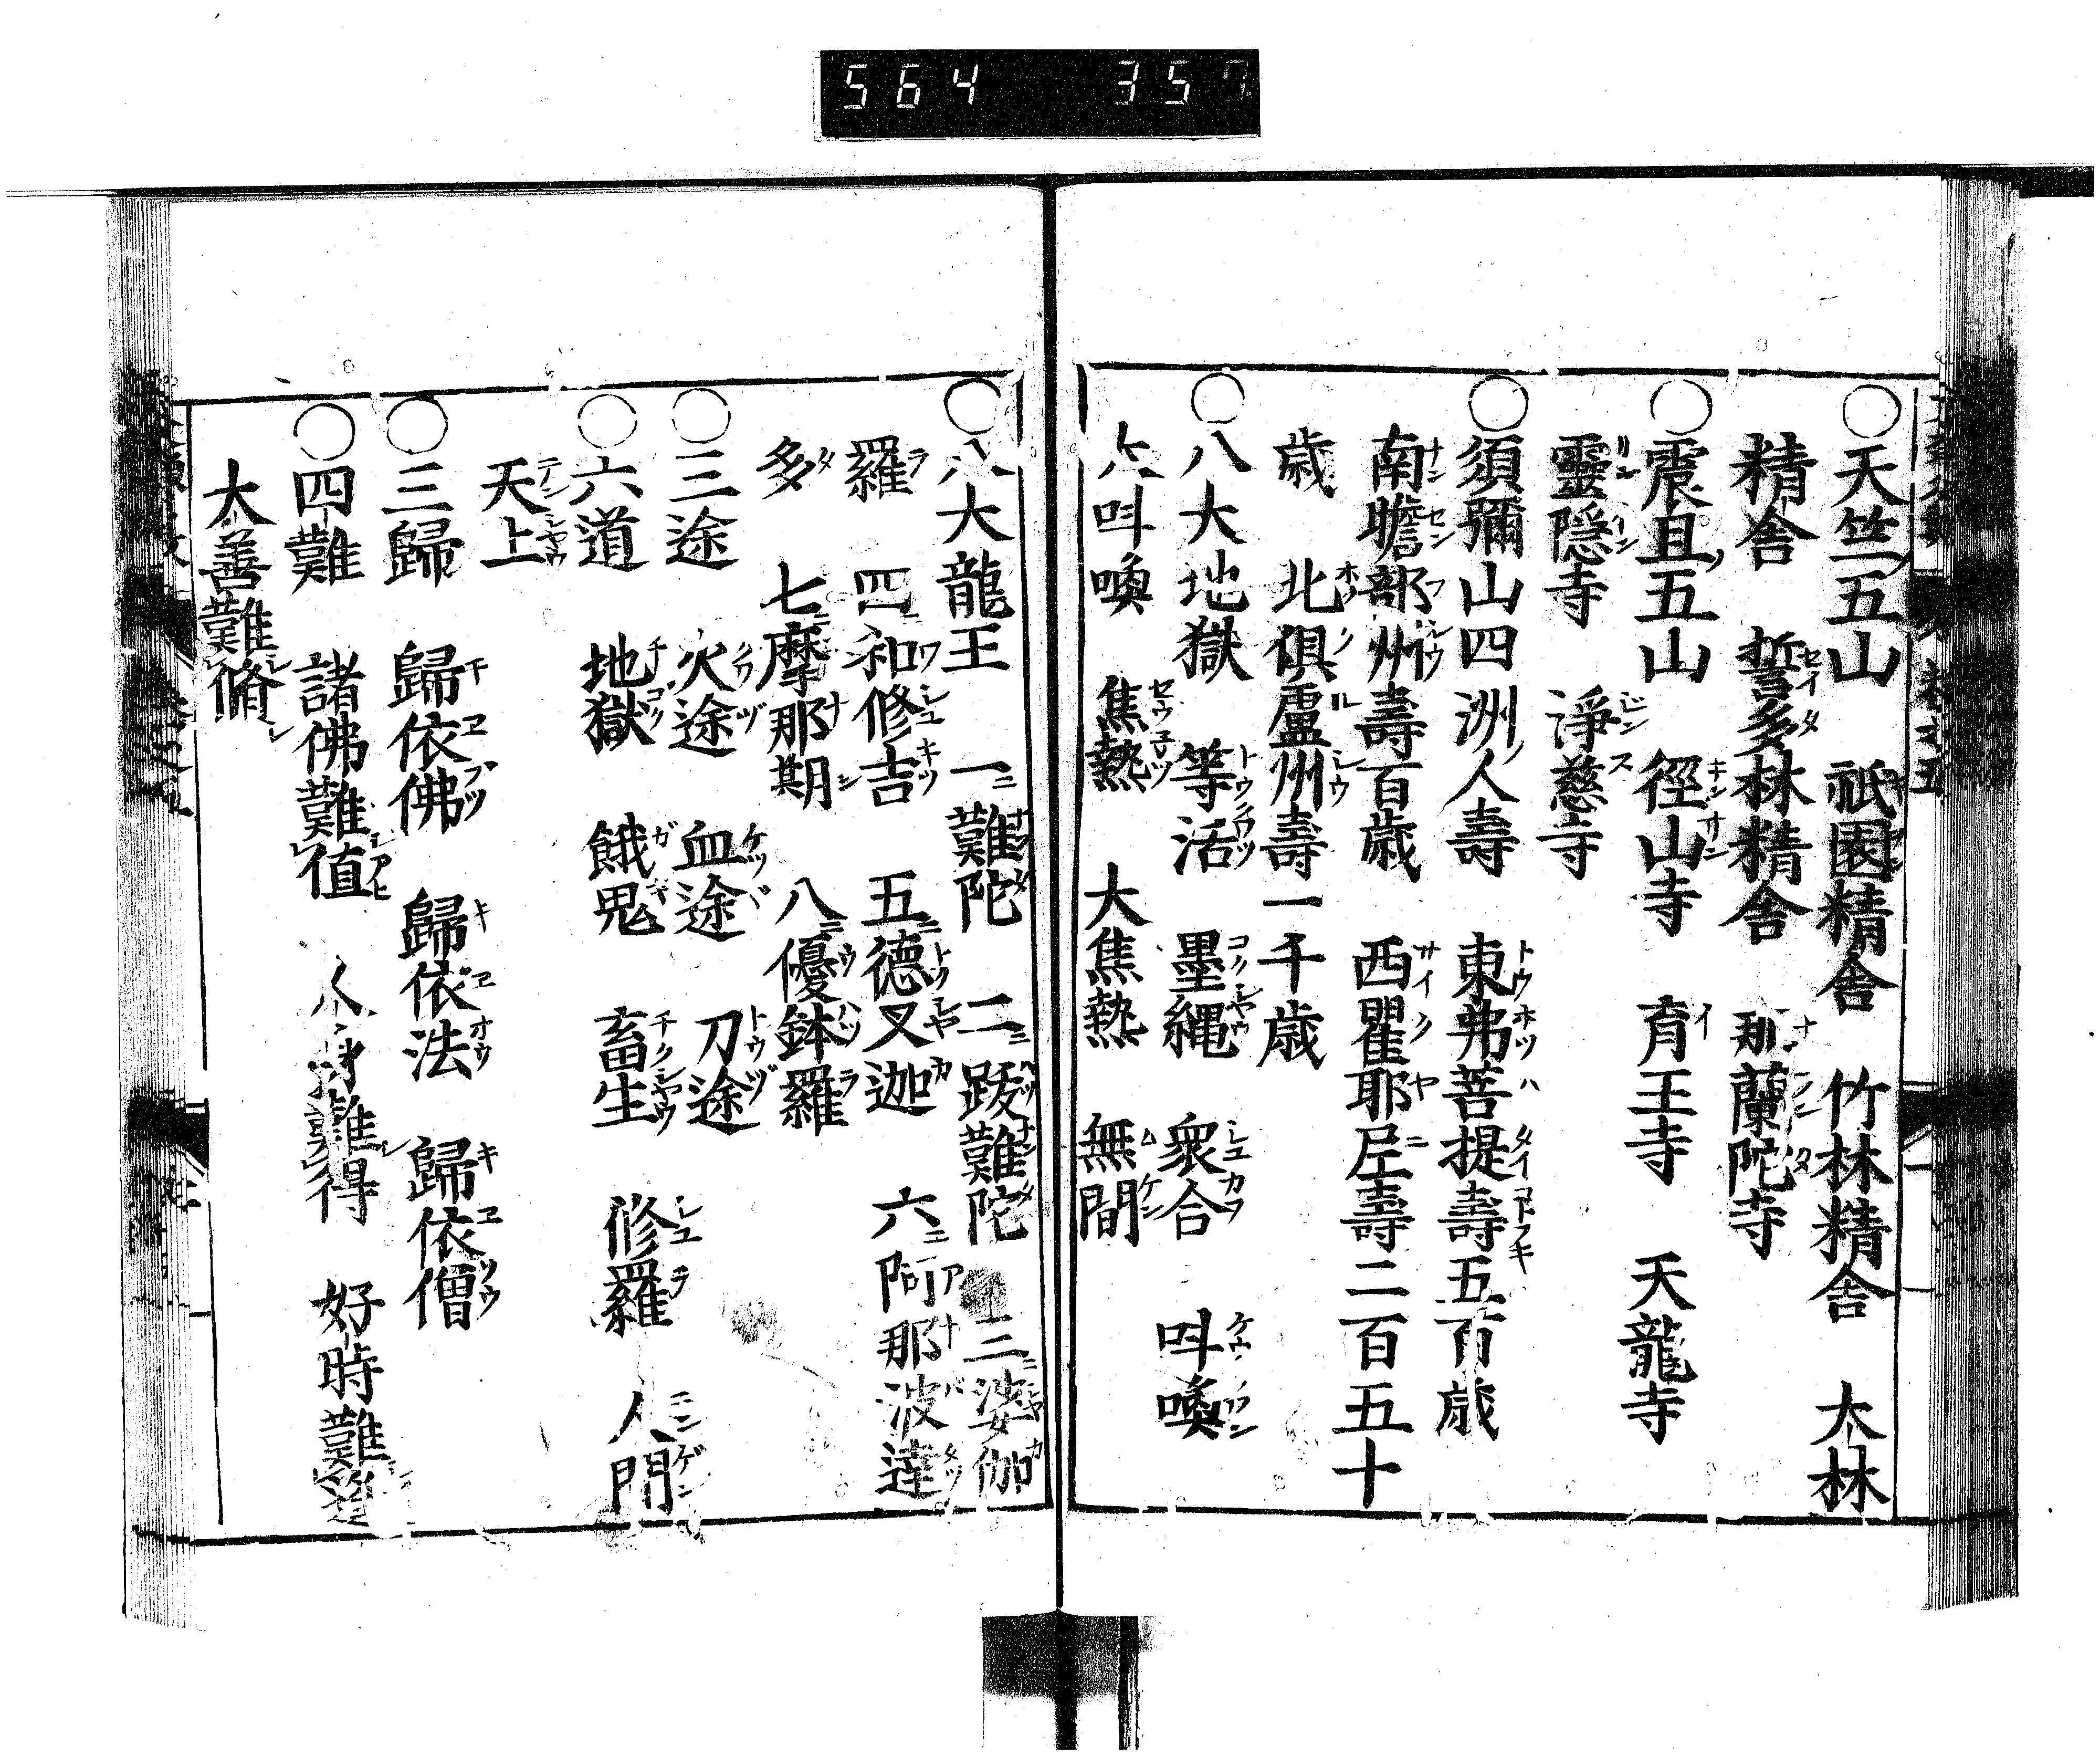 564 357
○天竺五山 祇園精舎 竹林精舎 大林
精舎 誓多林精舎 那蘭陀寺
○震旦五山 徑山寺 育王寺 天龍寺
靈隠寺 淨慈寺
○須彌山四洲人壽 東弗菩提壽五百歳
南瞻部州壽百歳 西瞿耶尼壽二百五十
歳 北倶盧州壽一千歳
○八大地獄 等活 墨縄 衆合 呌喚
大呌喚 焦熱 大焦熱 無間
○八大龍王 一難陀 二跋難陀 三娑伽
羅 四和修吉 五徳叉迦 六阿那波達
多 七摩那期 八優鉢羅
○三途 火途 血途 刀途
○六道 地獄 餓鬼 畜生 修羅 人間
天上
○三歸 歸依佛 歸依法 歸依僧
○四難 諸佛難値 人身難得 好時難
大善難脩